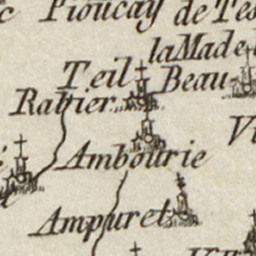 Pioucay de Tes
la Made
Teil Beau
Rattier
Vi
Ambourie
Ampurets